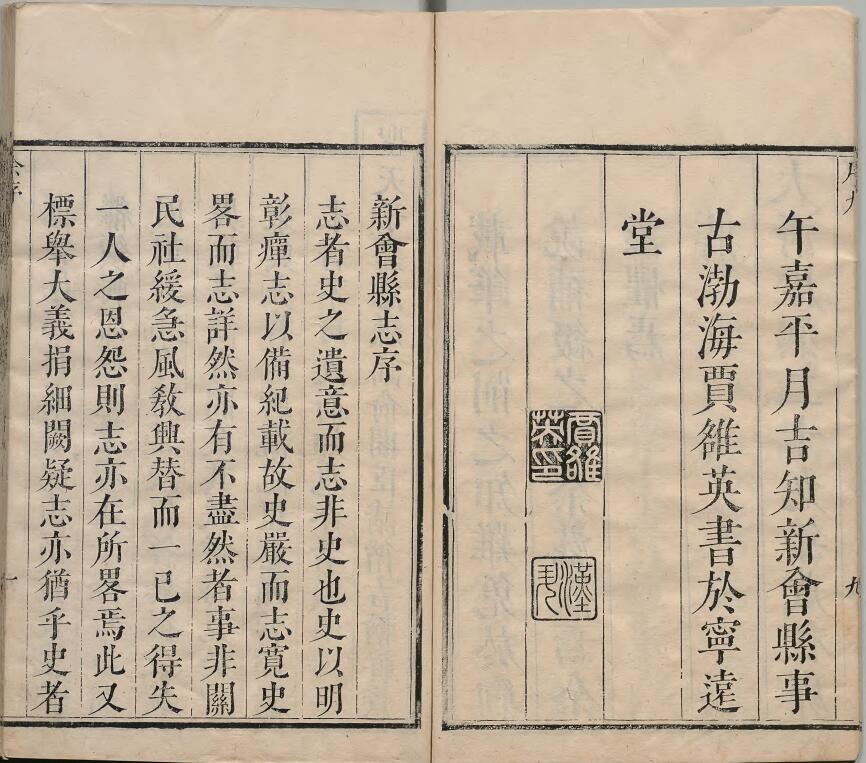 午嘉平月吉知新會縣事
古渤海賈雒英書於寧遠
堂
賈雒英印
漢甩
九
新會縣志序
志者史之遺意而志非史也史以明
彰癉志以備紀載故史嚴而志寛史
畧而志詳然亦有不盡然者事非關
民社緩急風敎興替而一已之得失
一人之恩怨則志亦在所畧焉此又
標舉大義捐細闕疑志亦猶乎史者
一